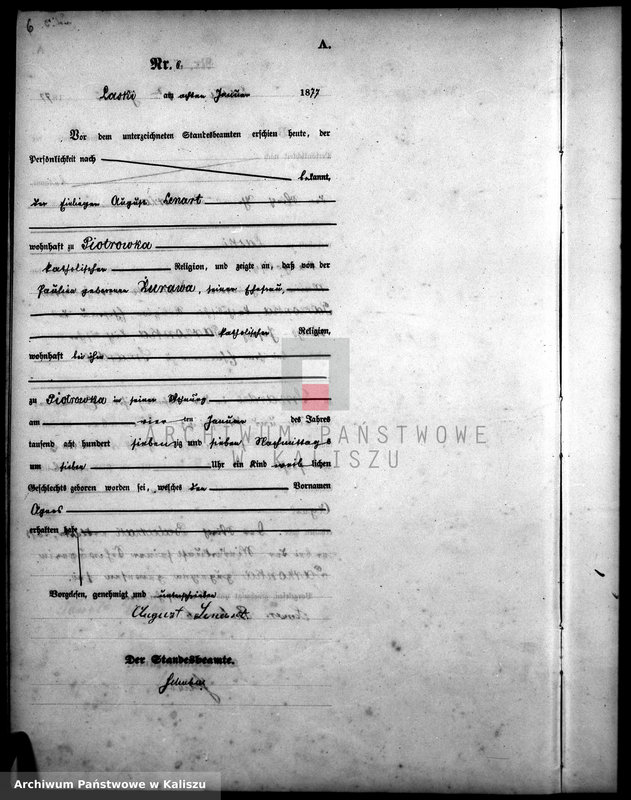 6
A.
Nr. 6.
Laski am achten Januar 1877
Vor dem unterzeichneten Standesbeamten erschien heute, der
Persönlichkeit nach
bekannt,
der Einlieger August Lenart
wohnhaft zu Piotrowka
katholischer Religion, und zeigte an, daß von der
Paulina geborenen Zurawa, seiner Ehefrau,
katholischer Religion,
wohnhaft bei ihm
zu Piotrowka in seiner Wohnung
am vier ten Januar des Jahres
tausend acht hundert siebenzig und sieben Nachmittags
um sieben Uhr ein Kind weiblichen
Geschlechts geboren worden sei, welches den Vornamen
Agnes
erhalten habe
Vorgelesen, genehmigt und unterschrieben
August Lenart
Der Standesbeamte.
ARCHIWUM PAŃSTWOWE
W KALISZU
Archiwum Państwowe w Kaliszu